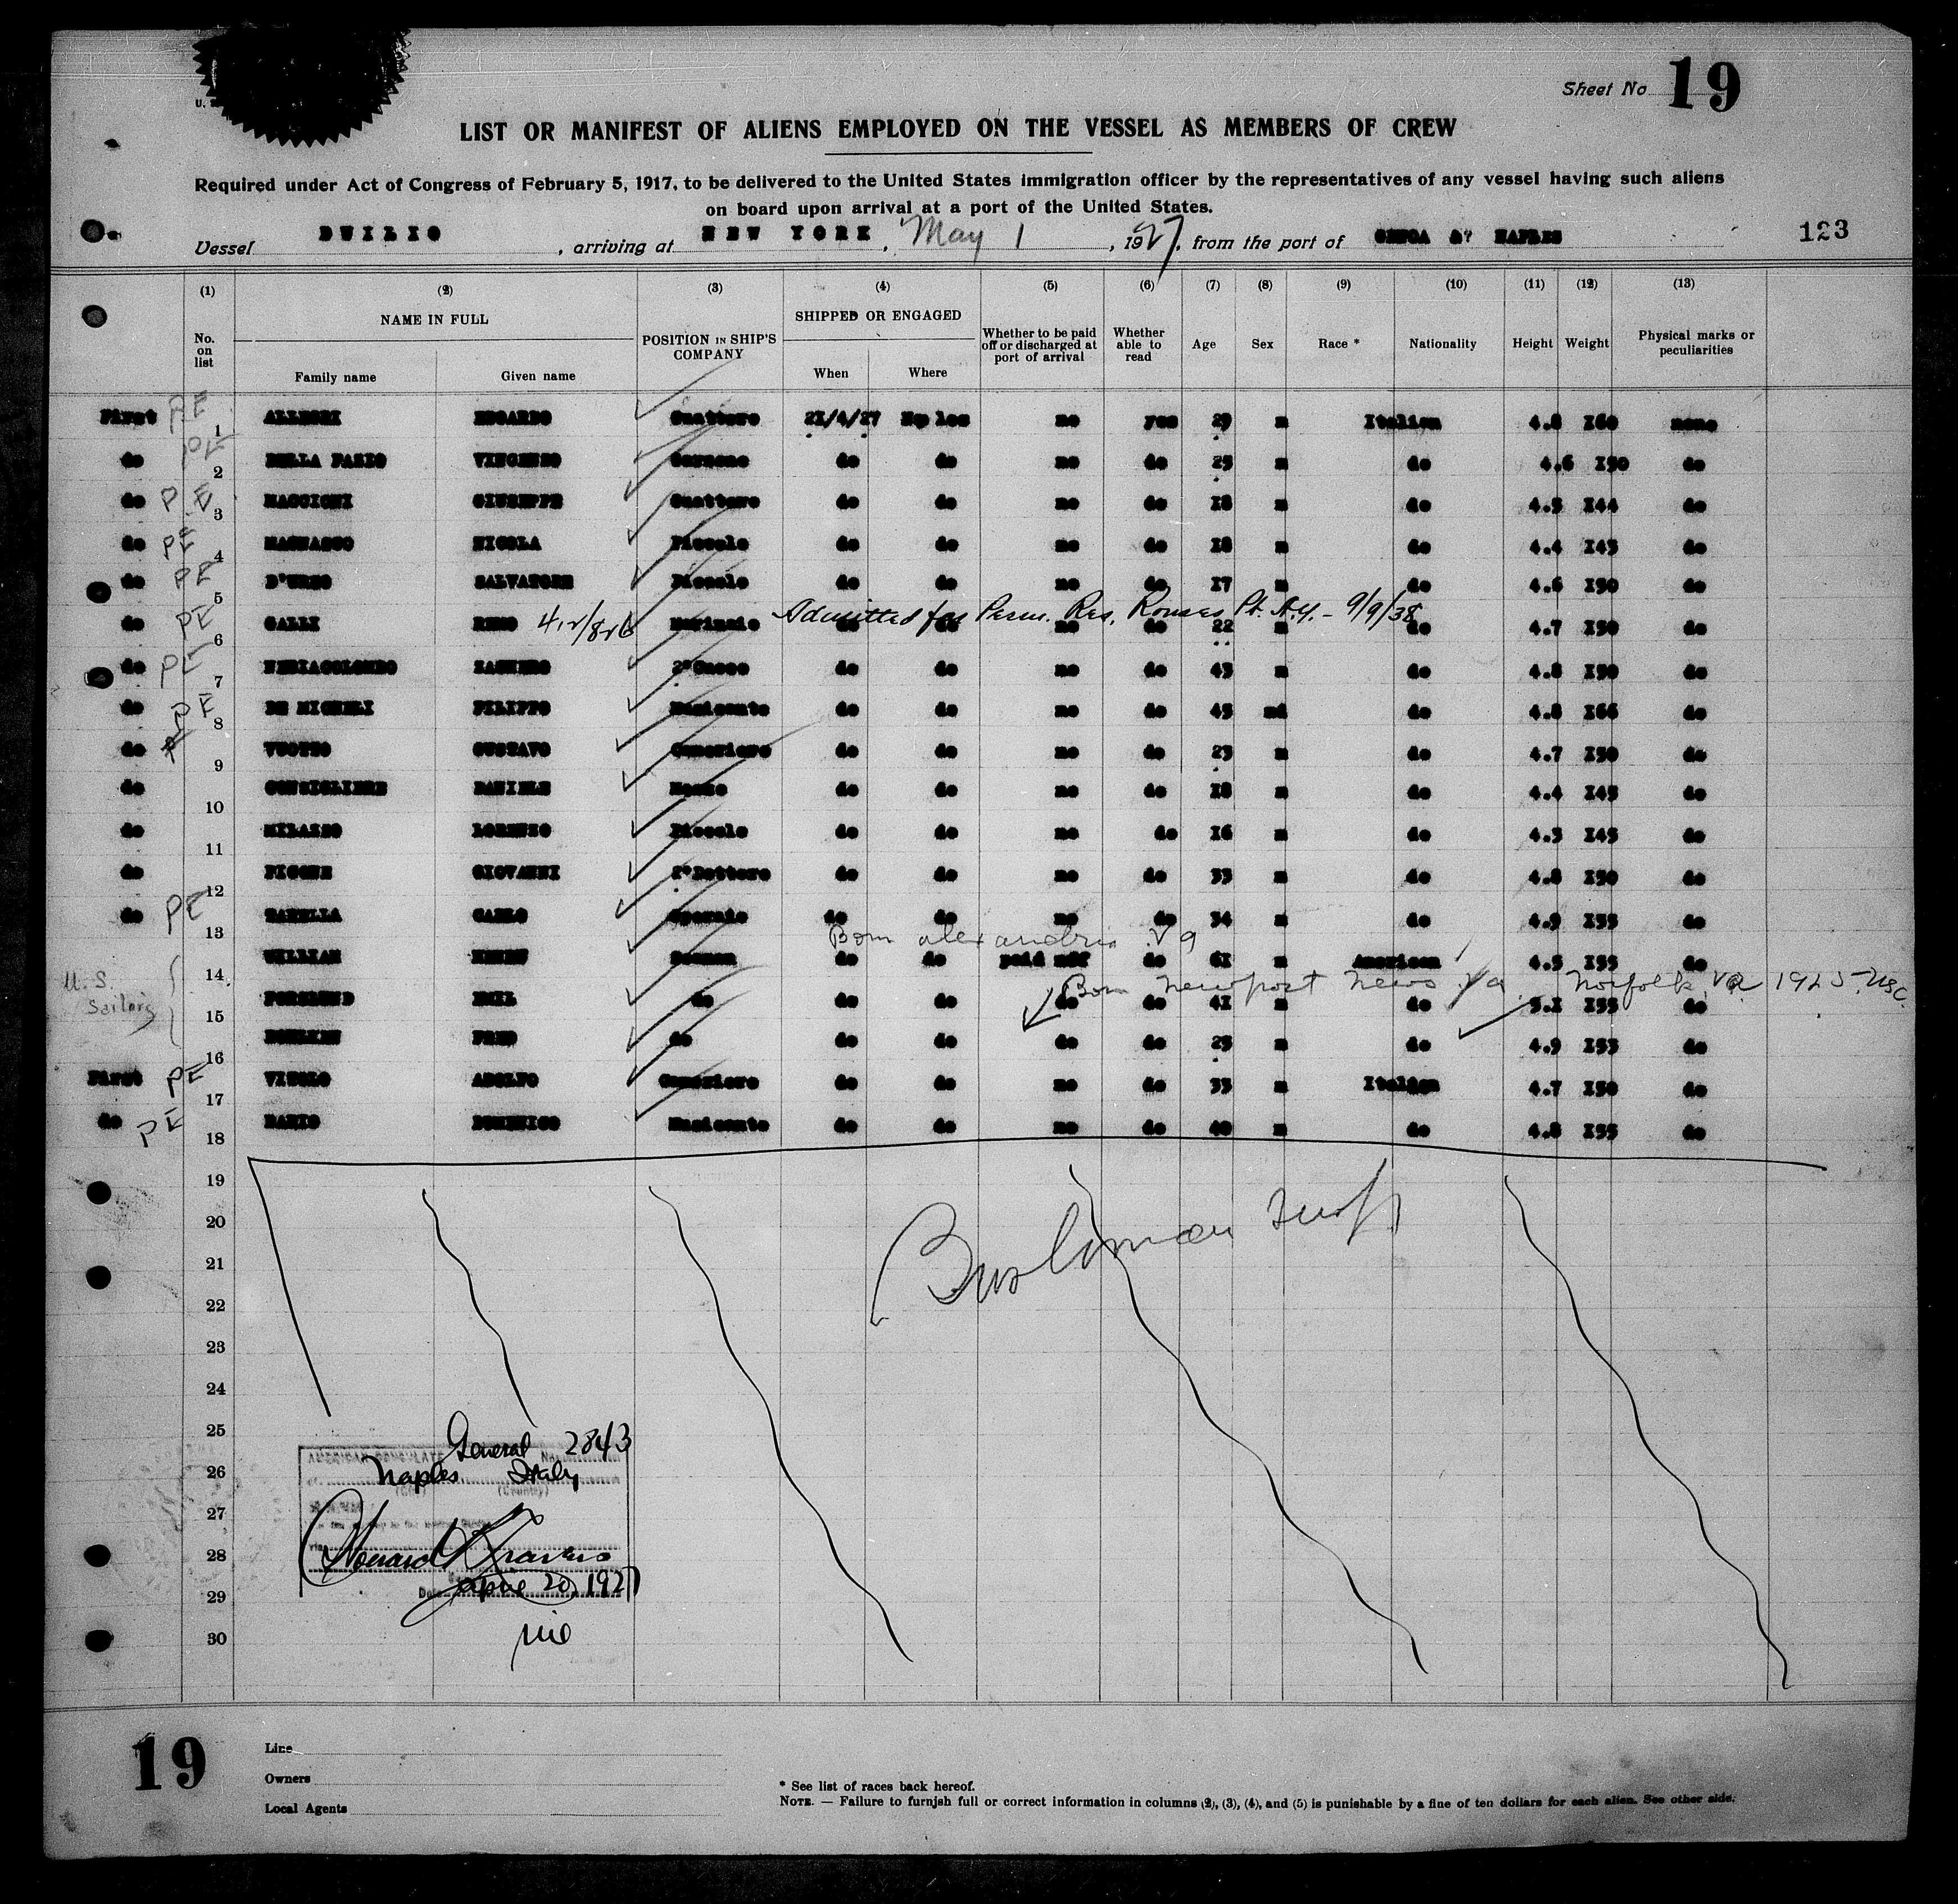 Sheet No 19
LIST OR MANIFEST OF ALIENS EMPLOYED ON THE VESSEL AS MEMBERS OF CREW
Required under Act of Congress of February 5, 1917, to be delivered to the United States immigration officer by the representatives of any vessel having such aliens
on board upon arrival at a port of the United States.
Vessel DUILIO , arriving at NEW YORK , May 1 , 1927, from the port of GENOA & NAPLES 123
(1) (2) (3) (4) (5) (6) (7) (8) (9) (10) (11) (12) (13)
No. on list NAME IN FULL POSITION IN SHIP'S COMPANY SHIPPED OR ENGAGED Whether to be paid off or discharged at port of arrival Whether able to read Age Sex Race * Nationality Height Weight Physical marks or peculiarities
Family name Given name When Where
First PE 1 ALLEGRI EDGARDO Guattero 21/4/27 Naples no yes 29 m Italian 4.8 160 none
do PE 2 DELLA FAZIO VINCENZO Garzone do do no do 25 m do 4.6 150 do
do PE 3 MAGGIONI GIUSEPPE Guattero do do no do 18 m do 4.5 144 do
do PE 4 MAGNASCO NICOLA Piccolo do do no do 18 m do 4.4 145 do
do PE 5 D'URSO SALVATORE Piccolo do do no do 17 m do 4.6 150 do
Admitted for Perm. Res. Rouses Pt. N.Y. - 9/9/38
do PE 6 GALLI REMO Marinaio do do no do 22 m do 4.7 150 do
do PE 7 2°Cuoco do do no do 43 m do 4.8 150 do
do PE 8 DE MICHELI FILIPPO Musicante do do no do 45 do 4.8 166 do
do P 9 GUSTAVO Cameriere do do no do 23 m do 4.7 150 do
do 10 CONSIGLIERE DANIELE Mozzo do do no do 18 m do 4.4 145 do
do 11 MILAZZO LORENZO Piccolo do do no do 16 m do 4.3 145 do
do 12 PICONE GIOVANNI do do no do 33 m do 4.8 150 do
do PE 13 ZANELLA CARLO Operaio do do no do 34 m do 4.9 155 do
Born Alexandria Va
14 WILLIAM HENRY Seaman do do paid off do 61 m American 4.5 155 do
U. S. Sailors
Born Newport News Va. Norfolk Va 1925
15 FORSLUND EMIL do do do do do 41 m do 5.1 155 do
16 FRED do do do do do 25 m do 4.9 153 do
First PE 17 ADOLFO Cameriere do do no do 33 m Italian 4.7 150 do
do PE 18 DARIO DOMENICO Musicante do do no do 40 m do 4.8 155 do
19
20
21
22
23
24
25
General 2843
26
Naples Italy
(City) (Country)
27
28
29
April 20, 1927
30
19
Line
Owners
Local Agents
* See list of races back hereof.
NOTE. — Failure to furnish full or correct information in columns (2), (3), (4), and (5) is punishable by a fine of ten dollars for each alien. See other side.